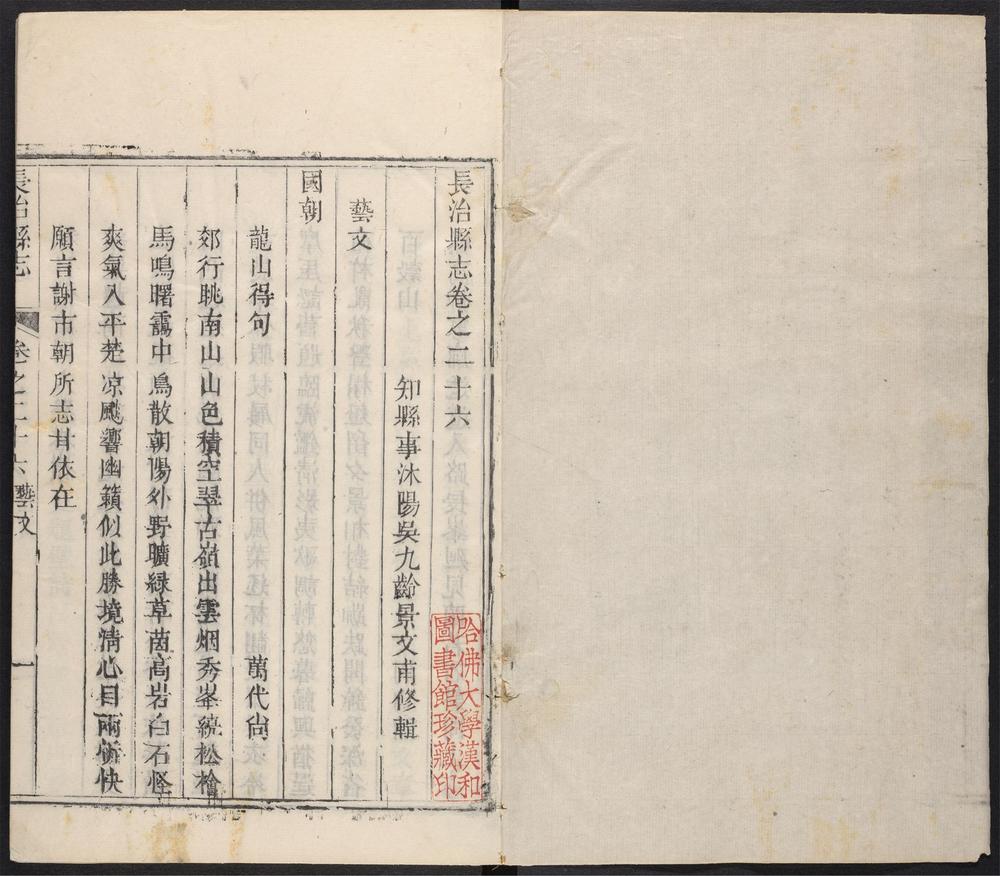 長治縣志卷之二十六
知縣事沭陽吳九齡景文甫修輯
藝文
國朝
龍山得句 萬代尙
郊行眺南山山色積空翠古嶺出雲烟秀峯繞松檜
馬鳴曙靄中鳥散朝陽外野曠緑草茵高岩白石怪
爽氣入平楚凉飈響幽籟似此勝境淸心目兩俯快
願言謝市朝所志甘依在
長治縣志 卷之二十六 藝文 一
哈佛大學漢和
圖書館珍藏印